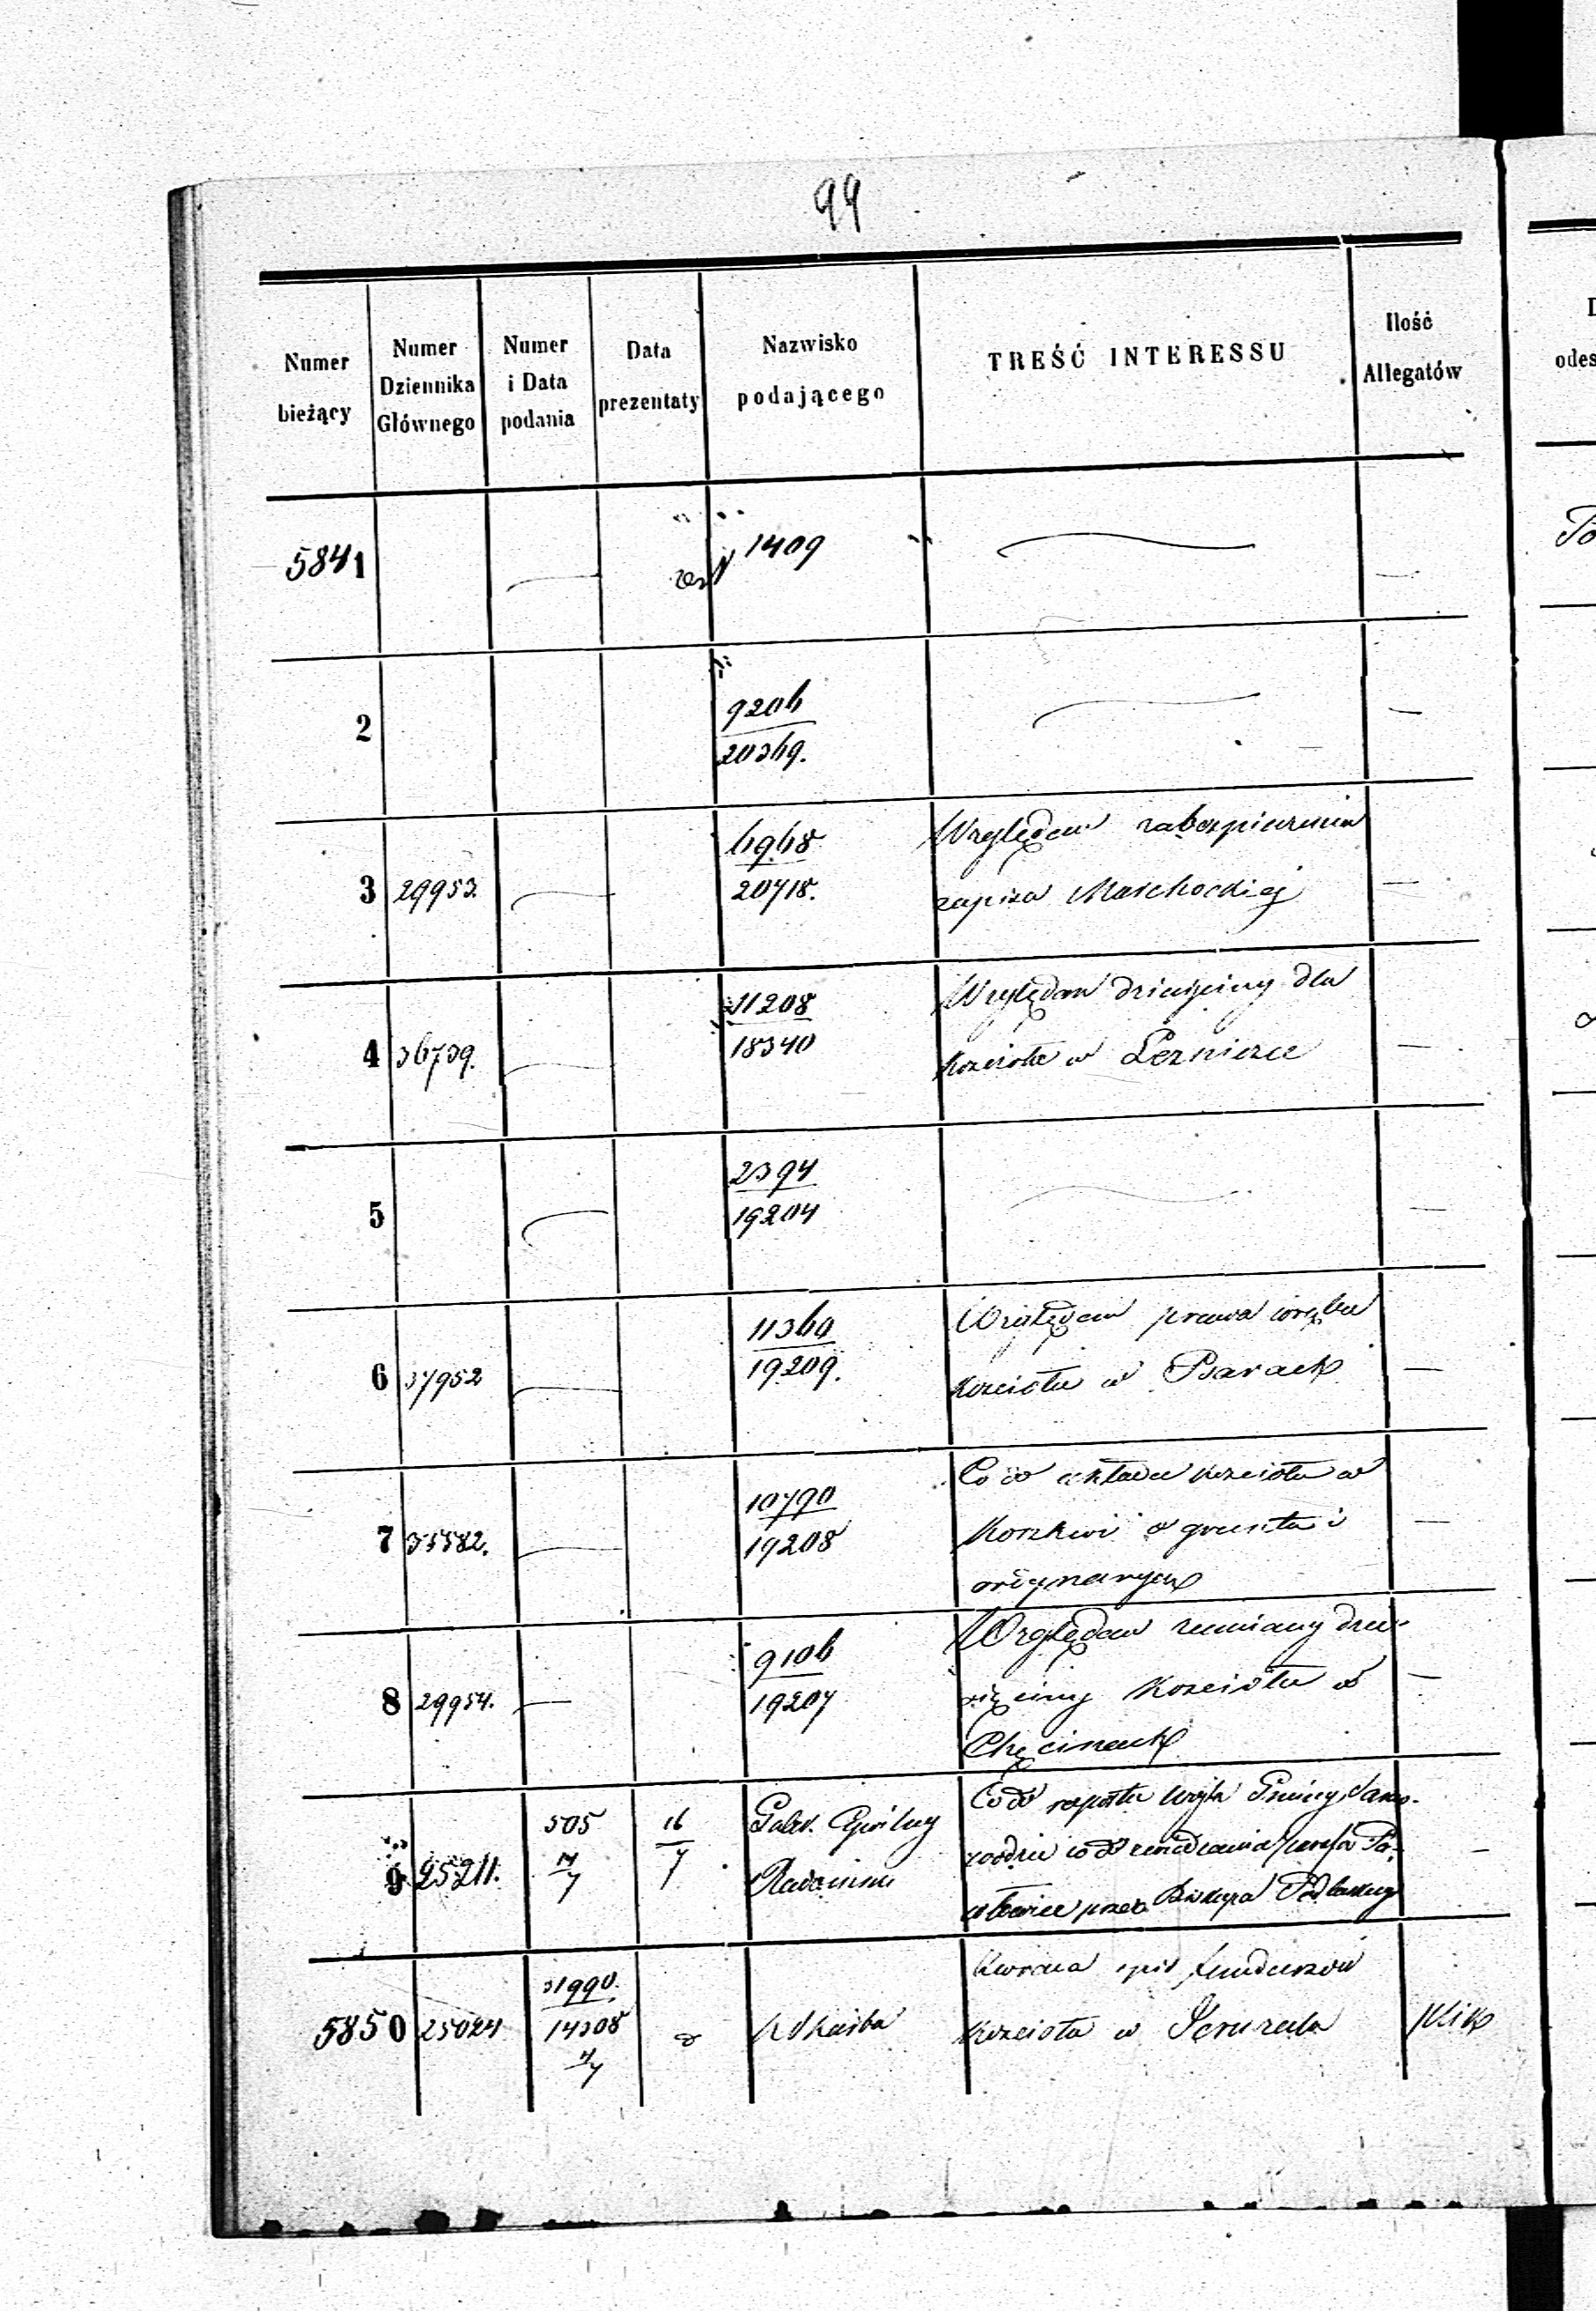 99
Numer bieżący
Numer Dziennika Głównego
Numer i Data podania
Data prezentaty
Nazwisko podającego
TREŚĆ INTERESSU
Ilość Allegatów
5841
1409
2
9206
20369.
3 29953.
6968
20718.
Względem zabezpieczenia
zapisu Maschockiej
4 36739.
11208
18340
Względem dziesięciny dla
Kościoła w
5
2394
19204
6 37952
11360
19209.
Względem prawa wrębu
Kościoła w Psarach
7 35582.
10790
19208
Co do układu Kościoła w
Koszkwi o grunta i
8 29954.
9106
19207
Względem zamiany dzie-
sięciny Kościoła w
Chęcinach
9 25211.
505
17/7
16/7
Gubr. Cywilny
Radomski
Co do raportu Wójta Gminy
przez Biskupa Podlaskiego
5850 25024
31990.
14308
4/7
Zwraca opis funduszów
Kościoła w Jeruzalu